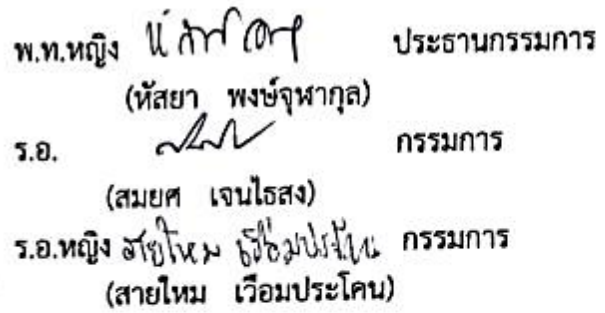 พ.ท.หญิง ประธานกรรมการ
(หัสยา พงษ์จุฬากุล)
ร.อ. กรรมการ
(สมยศ เจนไธสง)
ร.อ.หญิง สายไหม เวือมประโคน กรรมการ
(สายไหม เวือมประโคน)